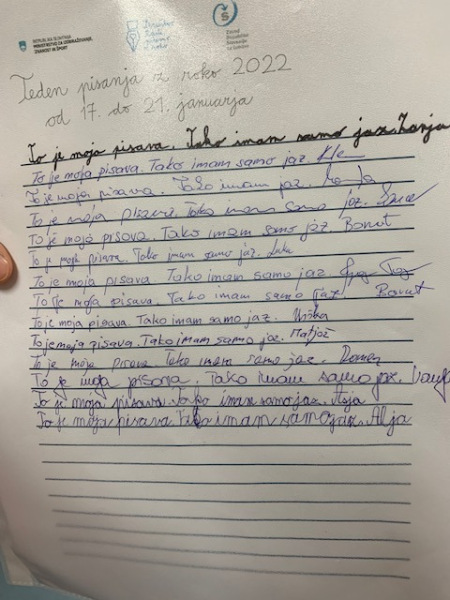 REPUBLIKA SLOVENIJA
MINISTRSTVO ZA IZOBRAŽEVANJE,
ZNANOST IN ŠPORT
Teden pisanja z roko 2022
od 17. do 21. januarja
To je moja pisava. Tako imam samo jaz. Tanja
To je moja pisava. Tako imam samo jaz.
To je moja pisava. Tako imam jaz.
To je moja pisava. Tako imam samo jaz.
To je moja pisava. Tako imam samo jaz Borut
To je moja pisava. Tako imam samo jaz. Luka
To je moja pisava. Tako imam samo jaz.
To je moja pisava. Tako imam samo jaz. Borut
To je moja pisava. Tako imam samo jaz. Urška
To je moja pisava. Tako imam samo jaz. Matjaž
To je moja pisava. Tako imam samo jaz.
To je moja pisava. Tako imam samo jaz.
To je moja pisava. Tako imam samo jaz. Asja
To je moja pisava. Tako iman samo jaz. Alja